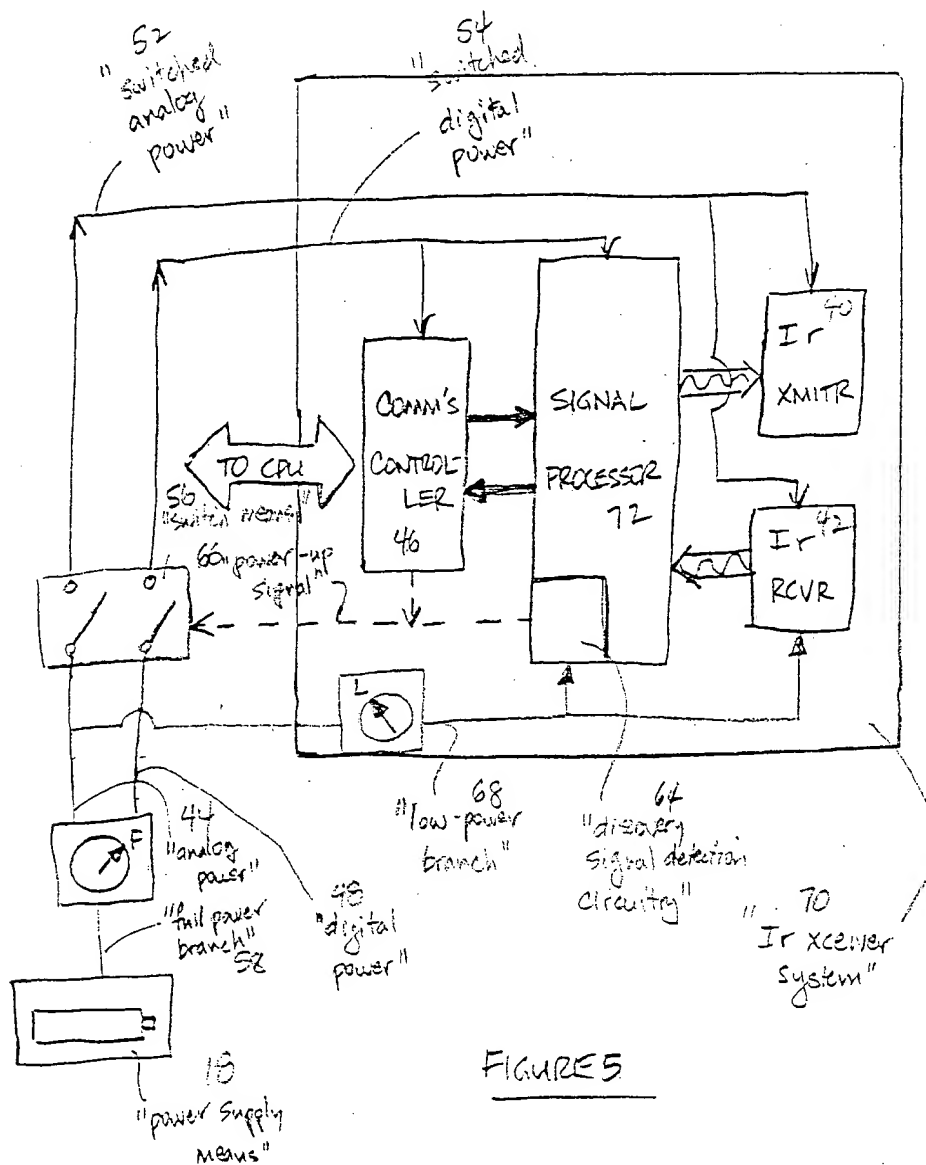 52
"switched
analog
power"
54
"switched
digital
power"
Ir 40
XMITR
COMM'S
CONTROL-
LER
46
SIGNAL
PROCESSOR
72
TO CPU
56
"switch means"
66 "power-up
signal"
Ir 42
RCVR
L
68
"low-power
branch"
64
"discovery
signal detection
circuitry"
70
"Ir xceiver
system"
44
"analog
power"
F
"full power
branch"
58
48
"digital
power"
18
"power supply
means"
FIGURE 5